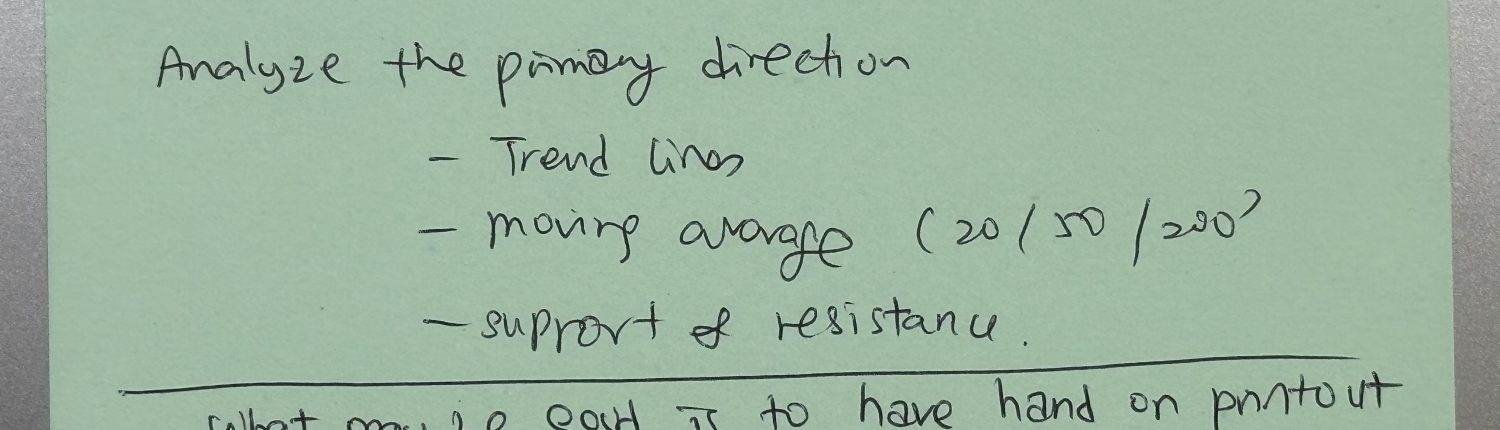 Analyze the primary direction
- Trend lines
- moving average (20/50/200)
- support & resistance.
to have hand on printout